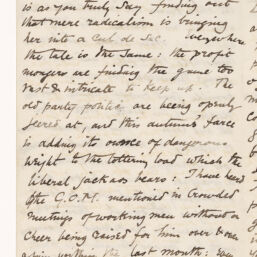 is as you truly say finding out
that mere radicalism is bringing
her into a Cul de Sac. everywhere
the tale is the same: the profit
mongers are finding the game too
vast & intricate to keep up. The
old party politics are being openly
jeered at, and this autumn's farce
is adding its ounce of dangerous
weight to the tottering load which the
liberal jackass bears: I have heard
the G.O.M. mentioned in crowded
meetings of working men without a
cheer being raised for him over & over
again within the last month: